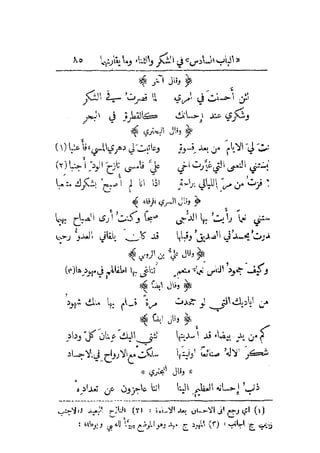 « الباب السادس » في الشكر والثناء وما يقاربهما ٨٥
﴿ وقال آخر ﴾
لئن أحسنت في أمري لما قصرت في الشكر
وشكري عند إحسانك كالقطرة في البحر
﴿ وقال البحتري ﴾
لي الأيام من بعد قسوة وعاتبت لي دهري المسيء فأعتبا (١)
النعمى التي غيرت أخي عليّ فأمسى نازح الود أجنبا (٢)
فزت من مر الليالي براحة إذا أنا لم أصبح بشكرك متعبا
﴿ وقال السري الرفاء ﴾
نعماً رأيت بها الدجى صبحاً وكنت أرى الصباح بهيما
يحسدني الصديق وقبلها قد كان يلقاني العدو رحيما
﴿ وقال علي بن الرومي ﴾
وكيف جحود الناس نعماء منعم تناغى بها أطفالهم في مهودها (٣)
﴿ وقال أيضاً ﴾
من أياديك التي لو جحدت مرة قام بها منك شهود
﴿ وقال أيضاً ﴾
كم من يد بيضاء قد أسديتها تثني إليك عنان كل وداد
شكر الإله صنائعاً أوليتها سلكت مع الأرواح في الأجساد
« وقال البحتري »
إحسانه العظيم إلينا أننا عاجزون عن تعداده
(١) أي رجع إلى الإحسان بعد الإساءة : (٢) النازح البعيد والأجنب
(٣) المهود ج مهد وهو الموضع يهيأ للصبي